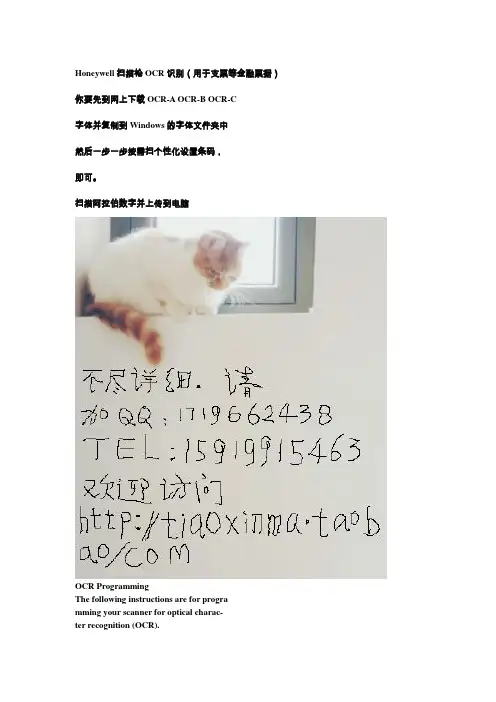 Honeywell 扫描枪 OCR 识别（用于支票等金融票据）
你要先到网上下载 OCR-A OCR-B OCR-C
字体并复制到 Windows 的字体文件夹中
然后一步一步按需扫个性化设置条码，
即可。
扫描阿拉伯数字并上传到电脑
不尽详细. 请
加QQ:1719662438
TEL:15919915463
欢迎访问
http://tiaoxinma.taob
ao/com
OCR Programming
The following instructions are for progra
mming your scanner for optical charac-
ter recognition (OCR).